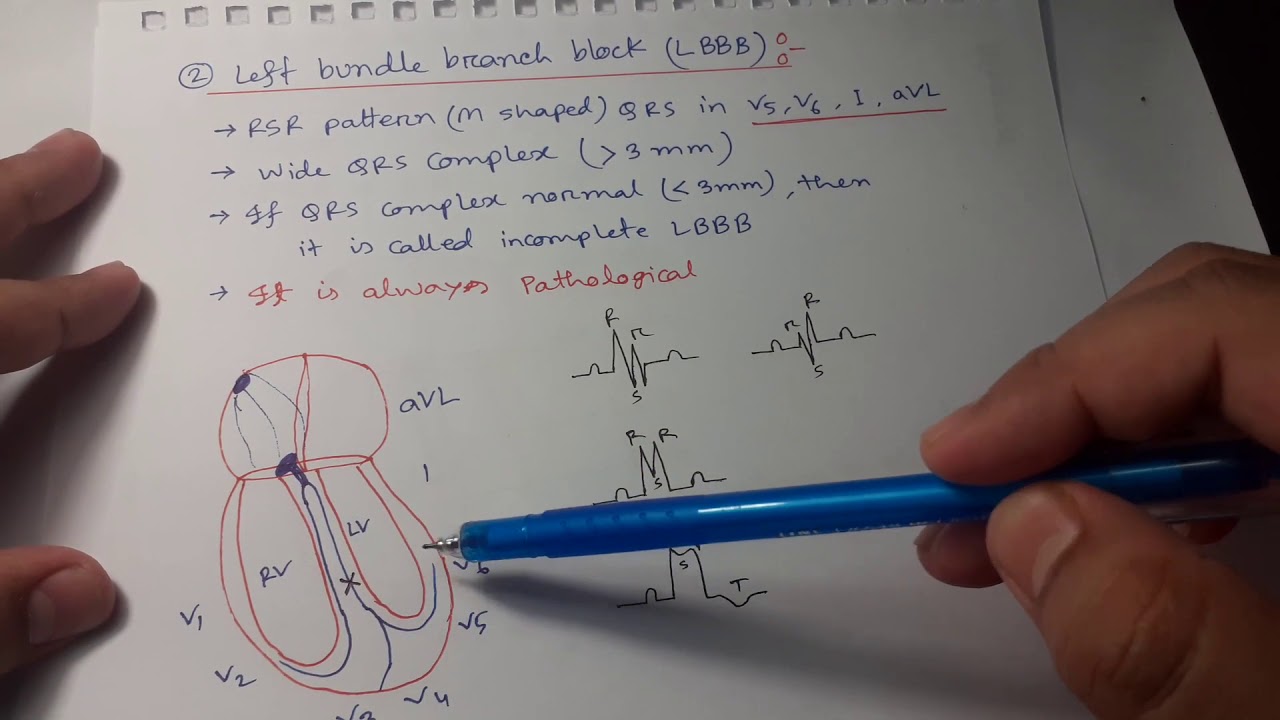 ② Left bundle branch block (LBBB) :-
→ RSR pattern (M shaped) QRS in V5, V6, I, aVL
→ Wide QRS complex (>3mm)
→ If QRS complex normal (<3mm), then
it is called incomplete LBBB
→ It is always Pathological
R
r
S
r
R
S
aVL
I
R R
S
LV
RV
V6
S
T
V1
V5
V2
V4
V3